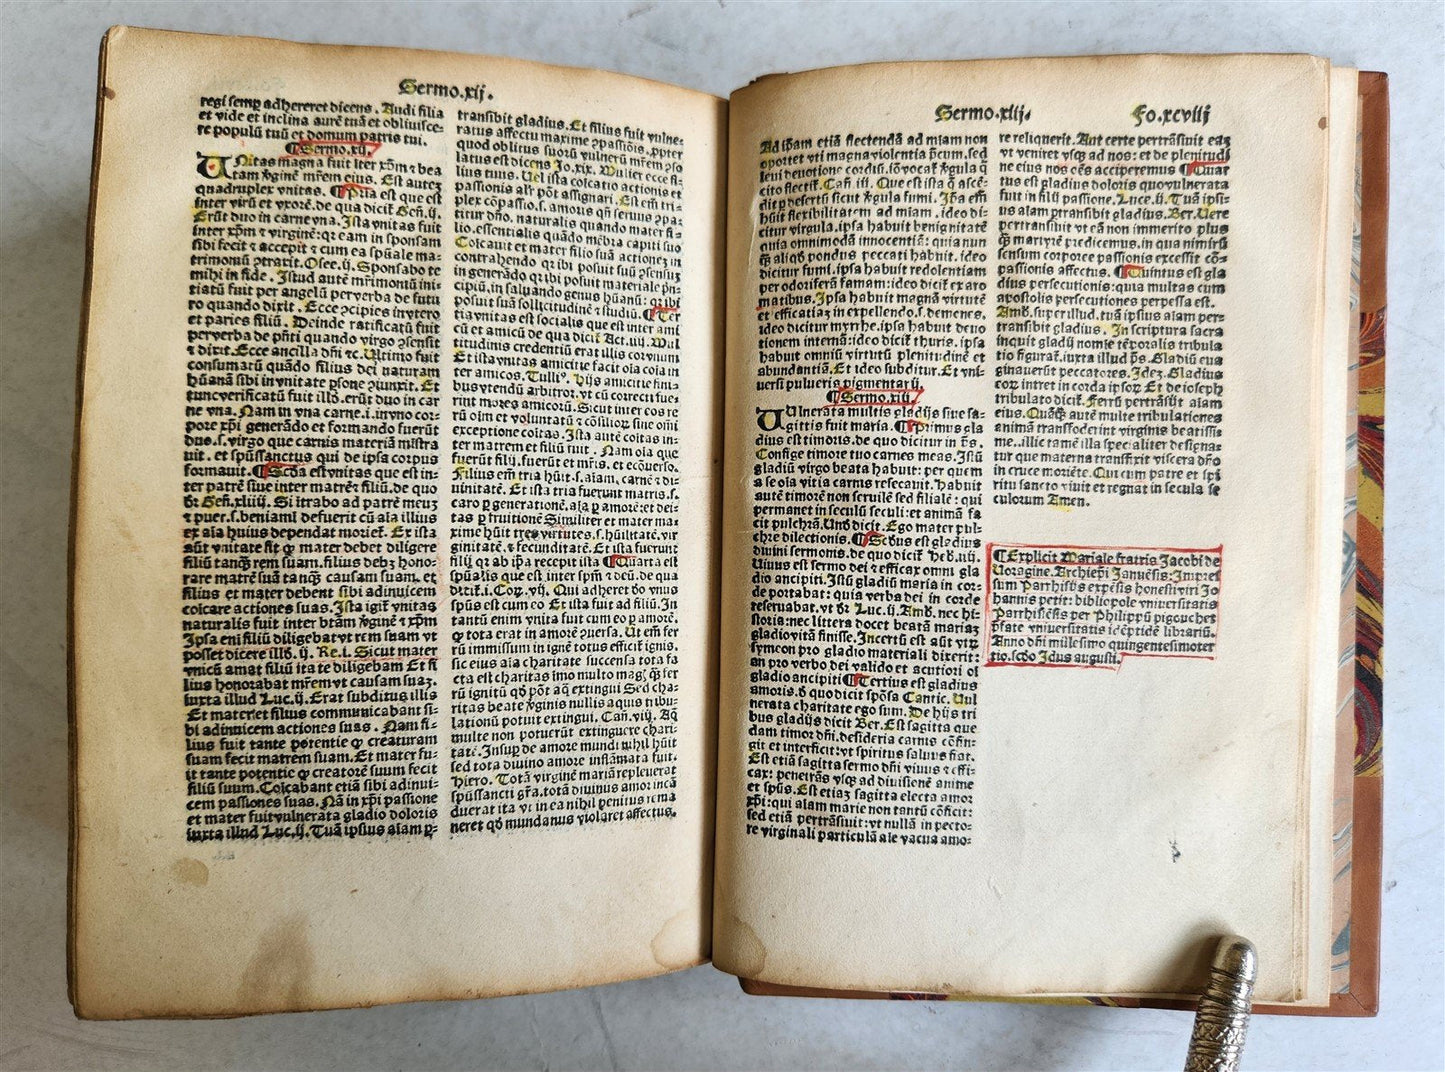 Sermo.xij.
regi semꝑ adhereret dicens. Audi filia
et vide et inclina aurē tuā et obliuisce-
re populū tuū et domum patris tui.
¶Sermo.xij.
UNitas magna fuit īter xp̄m ⁊ bea
tam v̄ginē mr̄em eius. Est autez
quadruplex vnitas. ¶Pria est que est
inter virū et vxorē. de qua dicit̄ Gen̄.ij.
Erūt duo in carne vna. Ista vnitas fuit
inter xp̄m ⁊ virginē: qr eam in sponsam
sibi fecit ⁊ accepit ⁊ cum ea sp̄uale ma-
trimoniū ɔtraxit. Osee.ij. Sponsabo te
mihi in fide. Istud autē mr̄imoniū ini-
tiatū fuit per angelū per verba de futu
ro quando dixit. Ecce ɔcipies in vtero
et paries filiū. Deinde ratificatū fuit
per verba de pn̄ti quando virgo ɔsensit
⁊ dixit. Ecce ancilla dn̄i ⁊c. Ultimo fuit
consumatū quādo filius dei naturam
hūanā sibi in vnitate ꝑsone ɔiunxit. Et
tunc verificatū fuit illđ. erūt duo in car
ne vna. Nam in vna carne .i. in vno cor-
pore xp̄i generādo et formando fuerūt
duo .s. virgo que carnis materiā mīstra
uit. et sp̄ussanctus qui de ipsa corpus
formauit. ¶Scđa est vnitas que est in-
ter patrē siue inter matrē ⁊ filiū. de quo
dr̄ Gen̄.xliiij. Si itrabo ad patrē meuz
⁊ puer .s. beniamī defuerit cū aīa illius
ex aīa huius dependat moriet̄. Ex ista
aūt vnitate fit ꝙ mater debet diligere
filiū tanq̄ʒ rem suam. filius debʒ hono-
rare matrē suā tanq̄ʒ causam suam. et
filius et mater debent sibi adinuicem
colcare actiones suas. Ista igit̄ vnitas
naturalis fuit inter btām v̄ginē ⁊ xp̄m
Ipsa eni filiū diligebat vt rem suam vt
posset dicere illđ .ij. Re.i. Sicut mater
vnicū amat filiū ita te diligebam Et fi
lius honorabat mr̄em vt causam suaz.
iuxta illud Luc.ij. Erat subditus illis
Et mater et filius communicabant si-
bi adinuicem actiones suas. Nam fi-
lius fuit tante potentie ꝙ creaturam
suam fecit matrem suam. Et mater fu-
it tante potentie ꝙ creatorē suum fecit
filiū suum. Coīcabant etiā sibi adinui-
cem passiones suas. Nā in xp̄i passione
et mater fuit vulnerata gladio doloris
iuxta illud Luc.ij. Tuā ipsius aīam ꝑ-
transibit gladius. Et filius fuit vulne-
ratus affectu maxime ɔpassiōis. ꝓpter
quod oblitus suorū vulnerū mr̄em ɔso
latus est dicens Jo.xix. Mulier ecce fi-
lius tuus. Uel ista coīcatio actionis et
passionis alr̄ pōt assignari. Est em̄ tri-
plex cōpassio .s. amoris qn̄ seruus ɔpa-
titur dn̄o. naturalis quando mater fi-
lio. essentialis quādo mēbra capiti suo
Coīcauit et mater filio suā actionez in
contrahendo qr ibi posuit suū ɔsensuʒ
in generādo qr ibi posuit materiale pn̄-
cipiū, in saluando genus hūanū: qr ibi
posuit suā sollicitudinē ⁊ studiū. ¶Ter
tia vnitas est socialis que est inter ami
cū et amicū de qua dicit̄ Act.iiij. Mul
titudinis credentiū erat illis cor vnum
Et ista vnitas amicitie facit oīa coīa in
ter amicos. Tulliꝰ. Hijs amicitie fini-
bus vtendū arbitror. vt cū correcti fue-
rint mores amicorū. Sicut inter eos re
rū oīm et voluntatū ⁊ cōsiliorʒ sine oīni
exceptione coītas. Ista autē coītas in-
ter matrem et filiū fuit. Nam oīa que
fuerūt filij. fuerūt et mr̄is. et ecōuerso.
Filius em̄ tria hūit .s. aīam, carnē ⁊ di-
uinitatē. Et ista tria fuerunt matris .s.
caro ꝑ generationē. aīa ꝑ amorē: et dei-
tas ꝑ fruitionē Similiter et mater ma-
xime hūit tres virtutes .s. hūilitatē, vir
ginitatē. ⁊ fecunditatē. Et ista fuerunt
filij qr ab ip̄a recepit ista ¶Quarta est
sp̄ualis que est inter sp̄m ⁊ deū. de qua
dicit̄ .i. Cor̄.vij. Qui adheret dō vnus
sp̄us est cum eo Et ista fuit ad filiū. In
tantum enim vniebatur sp̄ualiter cum eo.
ꝙ tota erat in amorē ɔuersa. Ut em̄ fer
rū immissum in ignē totus efficit̄ ignis.
sic eius aīa charitate succensa tota fa
cta est charitas imo multo magʒ. q̄ʒ fer
rū ignitū qđ pōt aq̄ extingui Sed cha-
ritas beate v̄ginis nullis aquis tribu-
lationū potuit extingui. Can̄.viij. Aq̄
multe non potuerūt extinguere chari-
tatē. Insuꝑ de amore mundi nihil hūit
sed tota diuino amore inflāmata fuit.
Hiero. Totā virginē mariā repleuerat
sp̄ussancti gr̄a. totā diuinus amor incā
duerat ita vt in ea nihil ꝑenitus rema
neret qđ mundanus violaret affectus.
Sermo.xiij. Fo.xcviij
Ad ip̄am etiā flectendā ad miam non
oportet vti magna violentia pcūm. sed
leui deuotione cordis. iō vocat̄ v̄gula q̄
cito flectit̄. Can̄.iij. Que est ista q̄ ascē-
dit ꝑ desertū sicut v̄gula fumi. Ip̄a em̄
hūit flexibilitatem ad miam. ideo di-
citur virgula. ipsa habuit benignitatē
quia omnimodā innocentiā: quia nun
q̄ʒ aliqđ pondus peccati habuit. ideo
dicitur fumi. ipsa habuit redolentiam
per odoriferū famam: ideo dicit̄ ex aro
matibus. Ipsa habuit magnā virtutē
et efficatiaʒ in expellendo .s. demenes.
ideo dicitur myrrhe. ipsa habuit deuo
tionem internā: ideo dicit̄ thuris. ipsa
habuit omniū virtutū plenitudinē et
abundantiā. Et ideo subditur. Et vni-
uersi pulueris pigmentarij.
¶Sermo.xiij.
UUlnerata multis gladijs siue sa-
gittis fuit maria. ¶Primus gla
dius est timoris. de quo dicitur in p̄s.
Confige timore tuo carnes meas. Istū
gladiū virgo beata habuit: per quem
a se oīa vitia carnis resecauit. Habuit
autē timorē non seruilē sed filialē: qui
permanet in seculū seculi: et animā fa
cit pulchrā. Unđ dicit. Ego mater pul-
chre dilectionis. ¶Scđus est gladius
diuini sermonis. de quo dicit̄ Heb.iiij.
Uiuus est sermo dei ⁊ efficax omni gla
dio ancipiti. Istū gladiū maria in cor-
de portabat: quia verba dei in corde
reseruabat. vt dr̄ Luc.ij. Amb̄. nec hi-
storia: nec littera docet beatā mariaʒ
gladio vitā finisse. Incertū est aūt vtrʒ
symeon pro gladio materiali dixerit:
an pro verbo dei valido et acutiori oī
gladio ancipiti ¶Tertius est gladius
amoris. đ quo dicit spōsa Cantic. Uul
nerata charitate ego sum. De hijs tri
bus gladijs dicit Ber. Est sagitta que
dam timor dn̄i. desideria carnis cōfin-
git et interficit: vt spiritus saluus fiat.
Est etiā sagitta sermo dn̄i viuus ⁊ effi-
cax: penetrās vsqʒ ad diuisionē anime
et sp̄us. Est etiaʒ sagitta electa amor
xp̄i: qui aīam marie non tantū cōficit:
sed etiā pertrāsiuit: vt nullā in pecto-
re virginali particulā ale vacua amo-
re relinqrerit. Aut certe pertrāsiuit eaʒ
vt veniret vsqʒ ad nos: et de plenitudī
ne eius nos oēs acciperemus ¶Quar
tus est gladius doloris quo vulnerata
fuit in filij passione. Luce.ij. Tuā ipsi-
us aīam ꝑtransibit gladius. Ber. Uere
pertransibit vt eā non immerito plus
q̄ʒ martyrē p̄dicemus. in qua nimirū
sensum corporee passionis excessit cō-
passionis affectus. ¶Quintus est gla
dius persecutionis: quia multas cum
apostolis persecutiones perpessa est.
Amb̄. super illud. tuā ipsius aīam per-
transibit gladius. In scriptura sacra
inquit gladij nomīe tēporalis tribula
tio figurat̄. iuxta illud p̄s. Gladiū eua
ginauerūt peccatores. Ideʒ. Gladius
eorʒ intret in corda ipsorʒ. Et de ioseph
tribulato dicit̄. Ferrū pertrāsiit aīam
eius. Quāqʒ autē multe tribulationes
animā transfoderint virginis beatissi=
me. illic tamē illa specialiter designa-
tur que materna transfixit viscera dn̄o
in cruce moriēte. Qui cum patre et spi
ritu sancto viuit et regnat in secula se
culorum Amen.
¶Explicit Mariale fratris Jacobi de
Uoragine. Archiep̄i Januēsis: Impres
sum Parrhisijs expēsis honesti viri Jo
hannis petit: bibliopole vniuersitatis
Parrhisiēsis per Philippū pigouchet
p̄fate vniuersitatis idēptidē librariū.
Anno dn̄i millesimo quingentesimoter
tio. scđo Idus augusti.